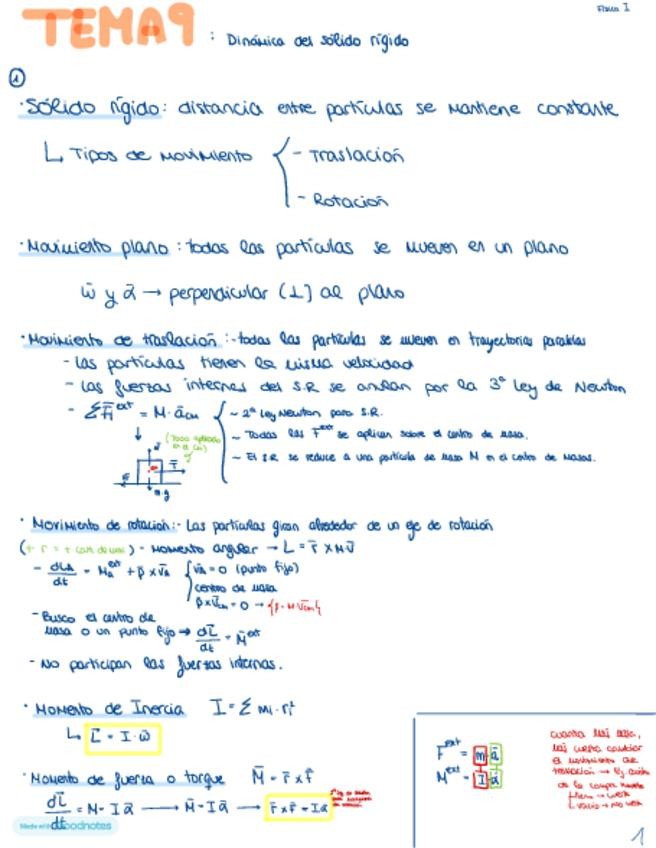 Física I
TEMA 9 : Dinámica del sólido rígido
1
· Sólido rígido: distancia entre partículas se mantiene constante
↳ Tipos de movimiento { - Traslación
- Rotación
· Movimiento plano: todas las partículas se mueven en un plano
ω̄ y ᾱ → perpendicular (⊥) al plano
· Movimiento de traslación: - todas las partículas se mueven en trayectorias paralelas
- Las partículas tienen la misma velocidad
- Las fuerzas internas del S.R se anulan por la 3ª Ley de Newton
- ΣF̄i^ext = M · ā cm { ~ 2ª Ley Newton para S.R.
~ Todas las F^ext se aplican sobre el centro de masa.
~ El S.R se reduce a una partícula de masa M en el centro de masas.
(Todo aplicado en el CM)
m·g
· Movimiento de rotación: - Las partículas giran alrededor de un eje de rotación
- Momento angular → L = r̄ x M v̄
- dLA/dt = MA^ext + p̄ x v̄A { v̄A = 0 (punto fijo)
centro de masa
p̄ x v̄cm = 0 → {p̄ = M·v̄cm}
- Busco el centro de
masa o un punto fijo → dL̄/dt = M̄^ext
- No participan las fuerzas internas.
· Momento de Inercia I = Σ mi · ri²
↳ L̄ = I · ω̄
· Momento de fuerza o torque M̄ = r̄ x f̄
dL̄/dt = M = I ᾱ → M̄ = I ᾱ → r̄ x F̄ = I ᾱ
F^ext = m ā
M^ext = I ᾱ
cuanta más masa,
más cuesta cambiar
el movimiento de
traslación → Ej. carrito
de la compra
lleno → cuesta
vacío → no cuesta
Made with Goodnotes
1